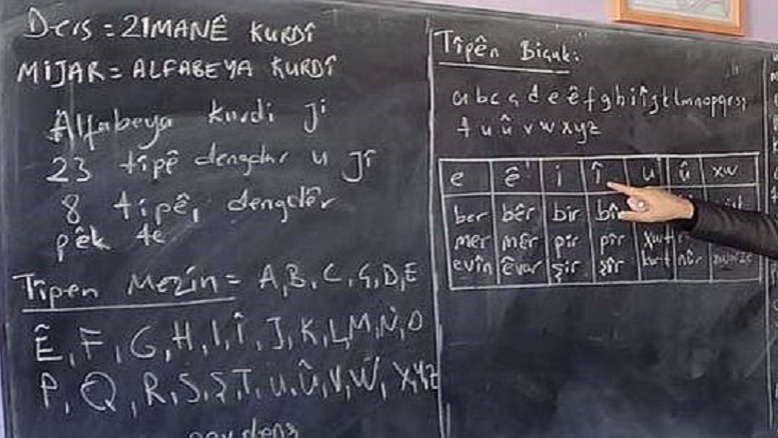 Ders = ZIMANÊ KURDÎ
MIJAR = ALFABEYA KURDÎ
Alfabeya kurdi ji
23 tîpê dengdar u jî
8 tipê, dengdêr
pêk te
Tîpen Mezin = A, B, C, Ç, D, E
Ê, F, G, H, I, Î, J, K, L, M, N, O
P, Q, R, S, Ş, T, U, Û, V, W, X, Y, Z
Tîpên Biçuk:
a b c ç d e ê f g h i î j k l m n o p q r s ş
t u û v w x y z
e ê i î u û xw
ber bêr bir
mer mêr pir pîr
evîn êvar şir şîr kurt nûr